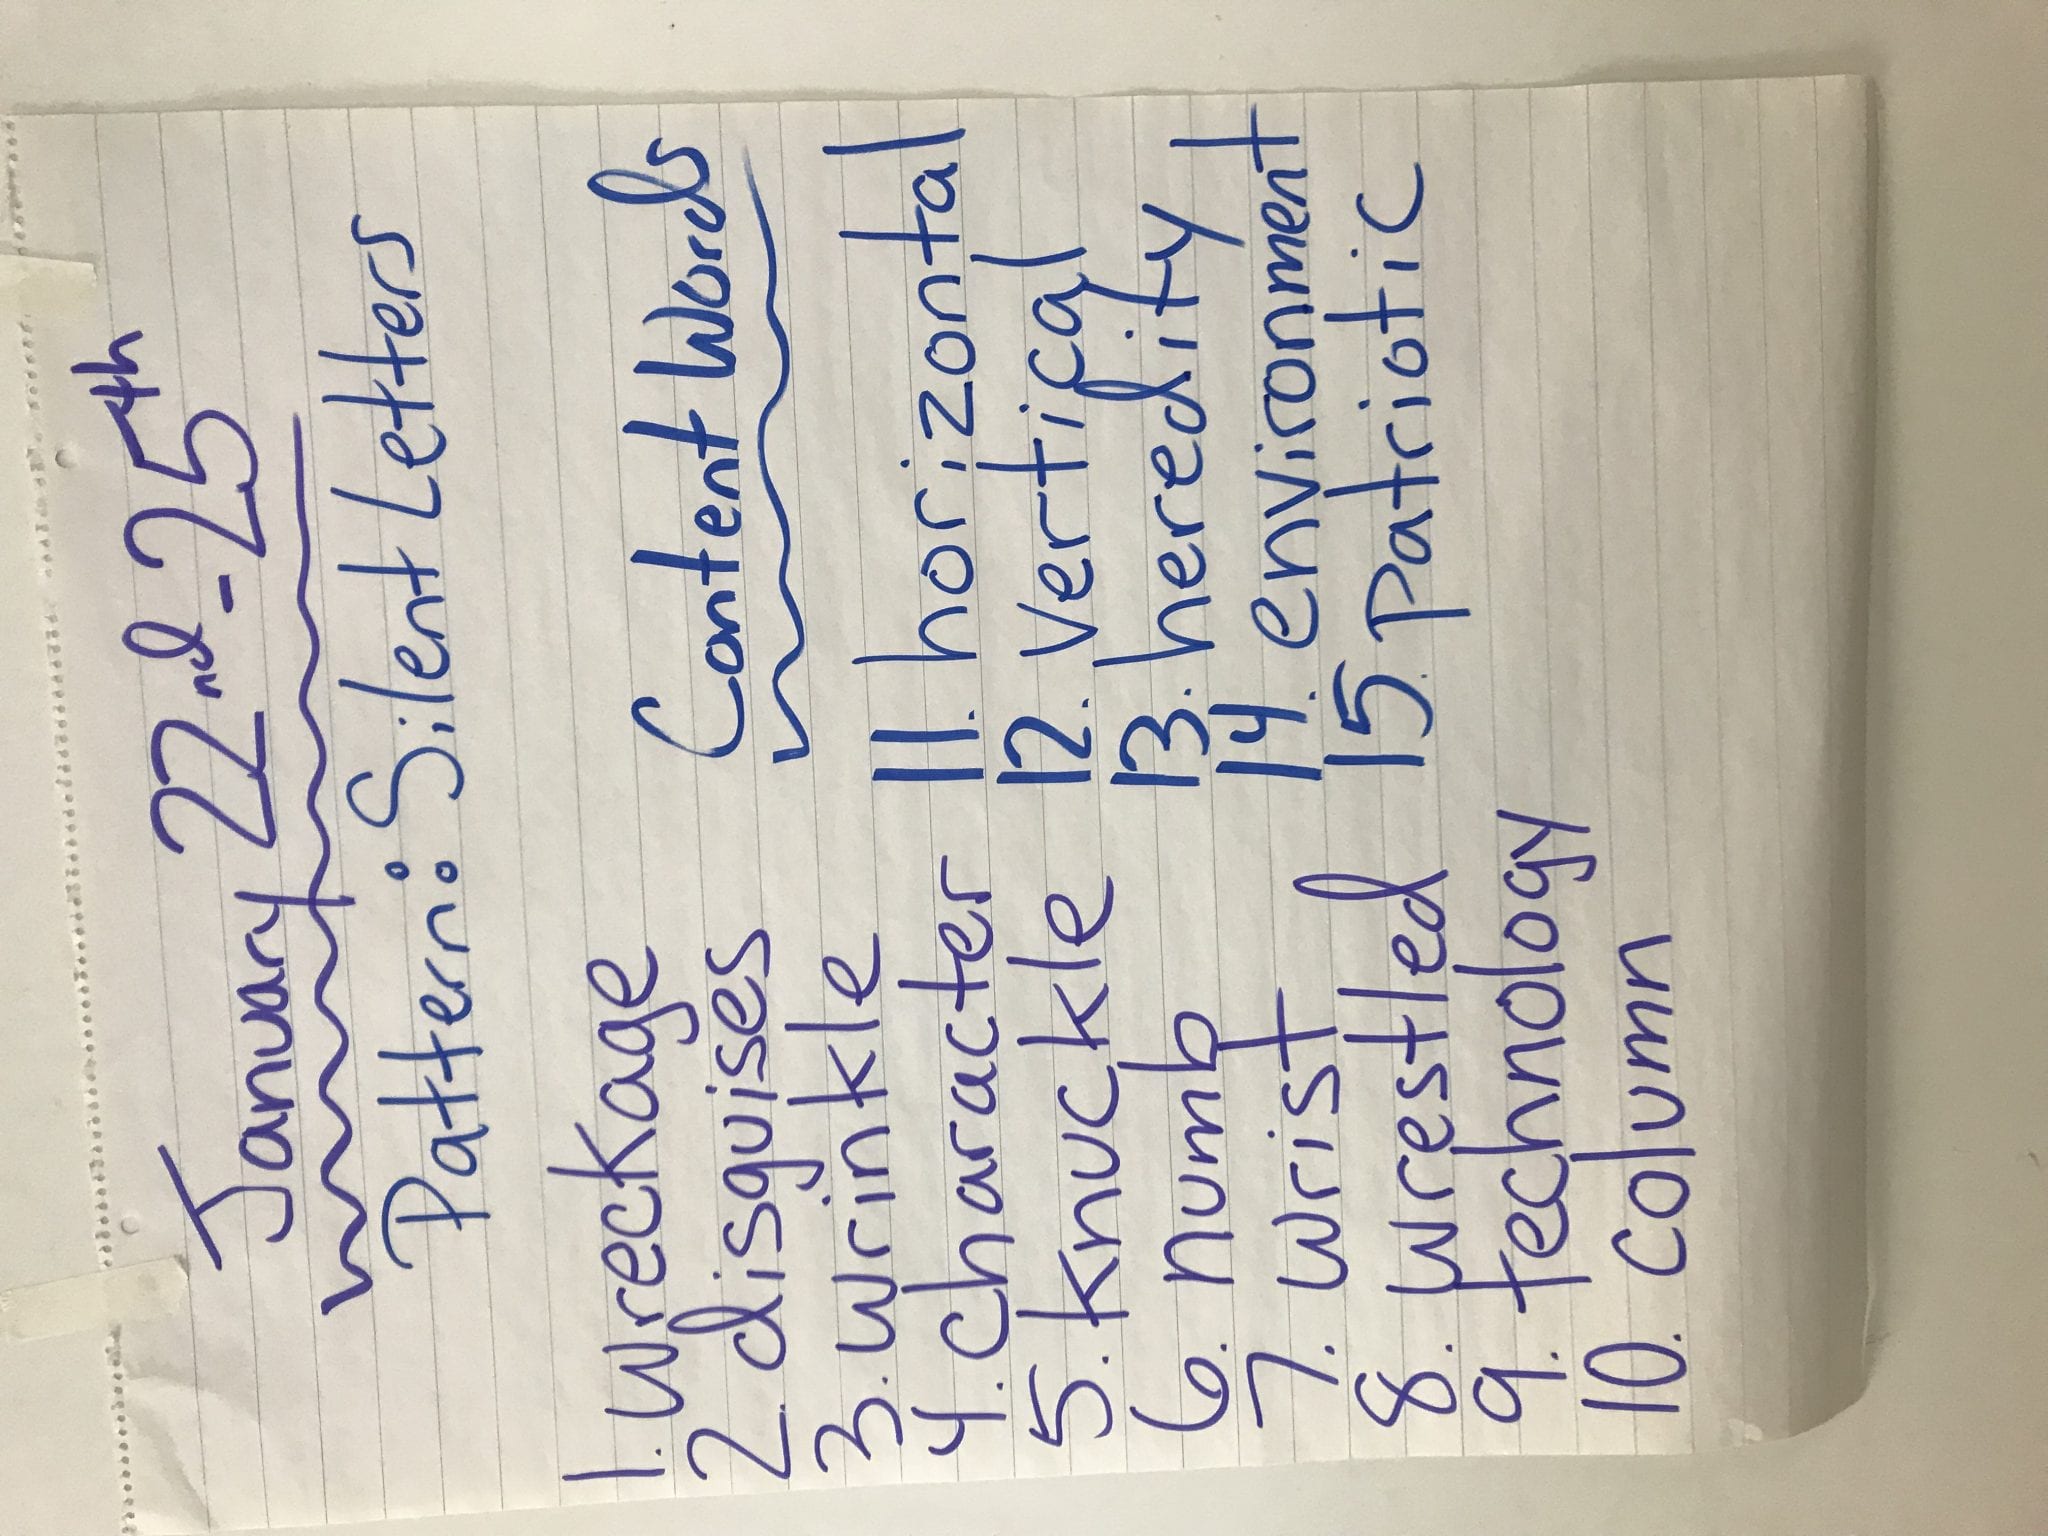 January 22nd - 25th
Pattern: Silent Letters
1. wreckage
2. disguises
3. wrinkle
4. character
5. knuckle
6. numb
7. wrist
8. wrestled
9. technology
10. column
Content Words
11. horizontal
12. vertical
13. heredity
14. environment
15. Patriotic